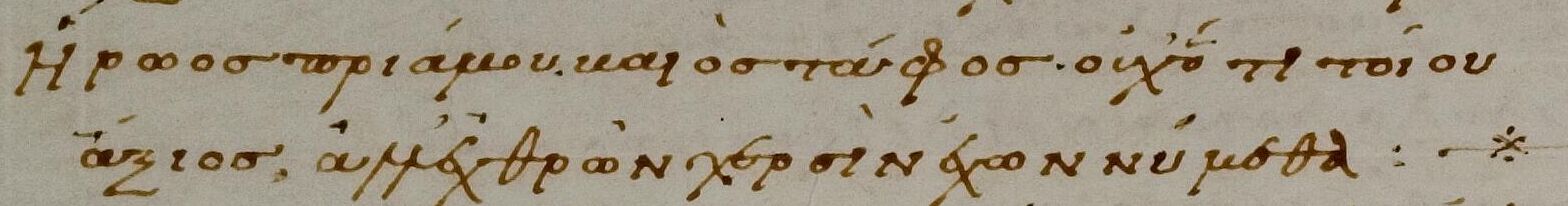 Ἥρωος πριάμου. καὶ ὃς τάφος. οὐχ' ὅτι τοίου
ἄξιος, ἀλλ' ἐχθρῶν χερσὶν ἐχωννύμεθα : -